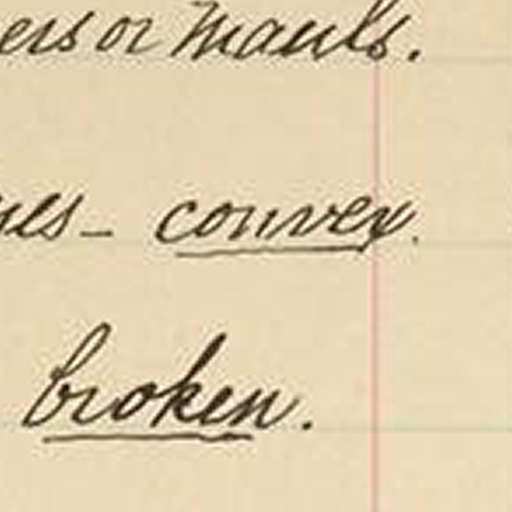 ers or Mauls.
convex.
broken.